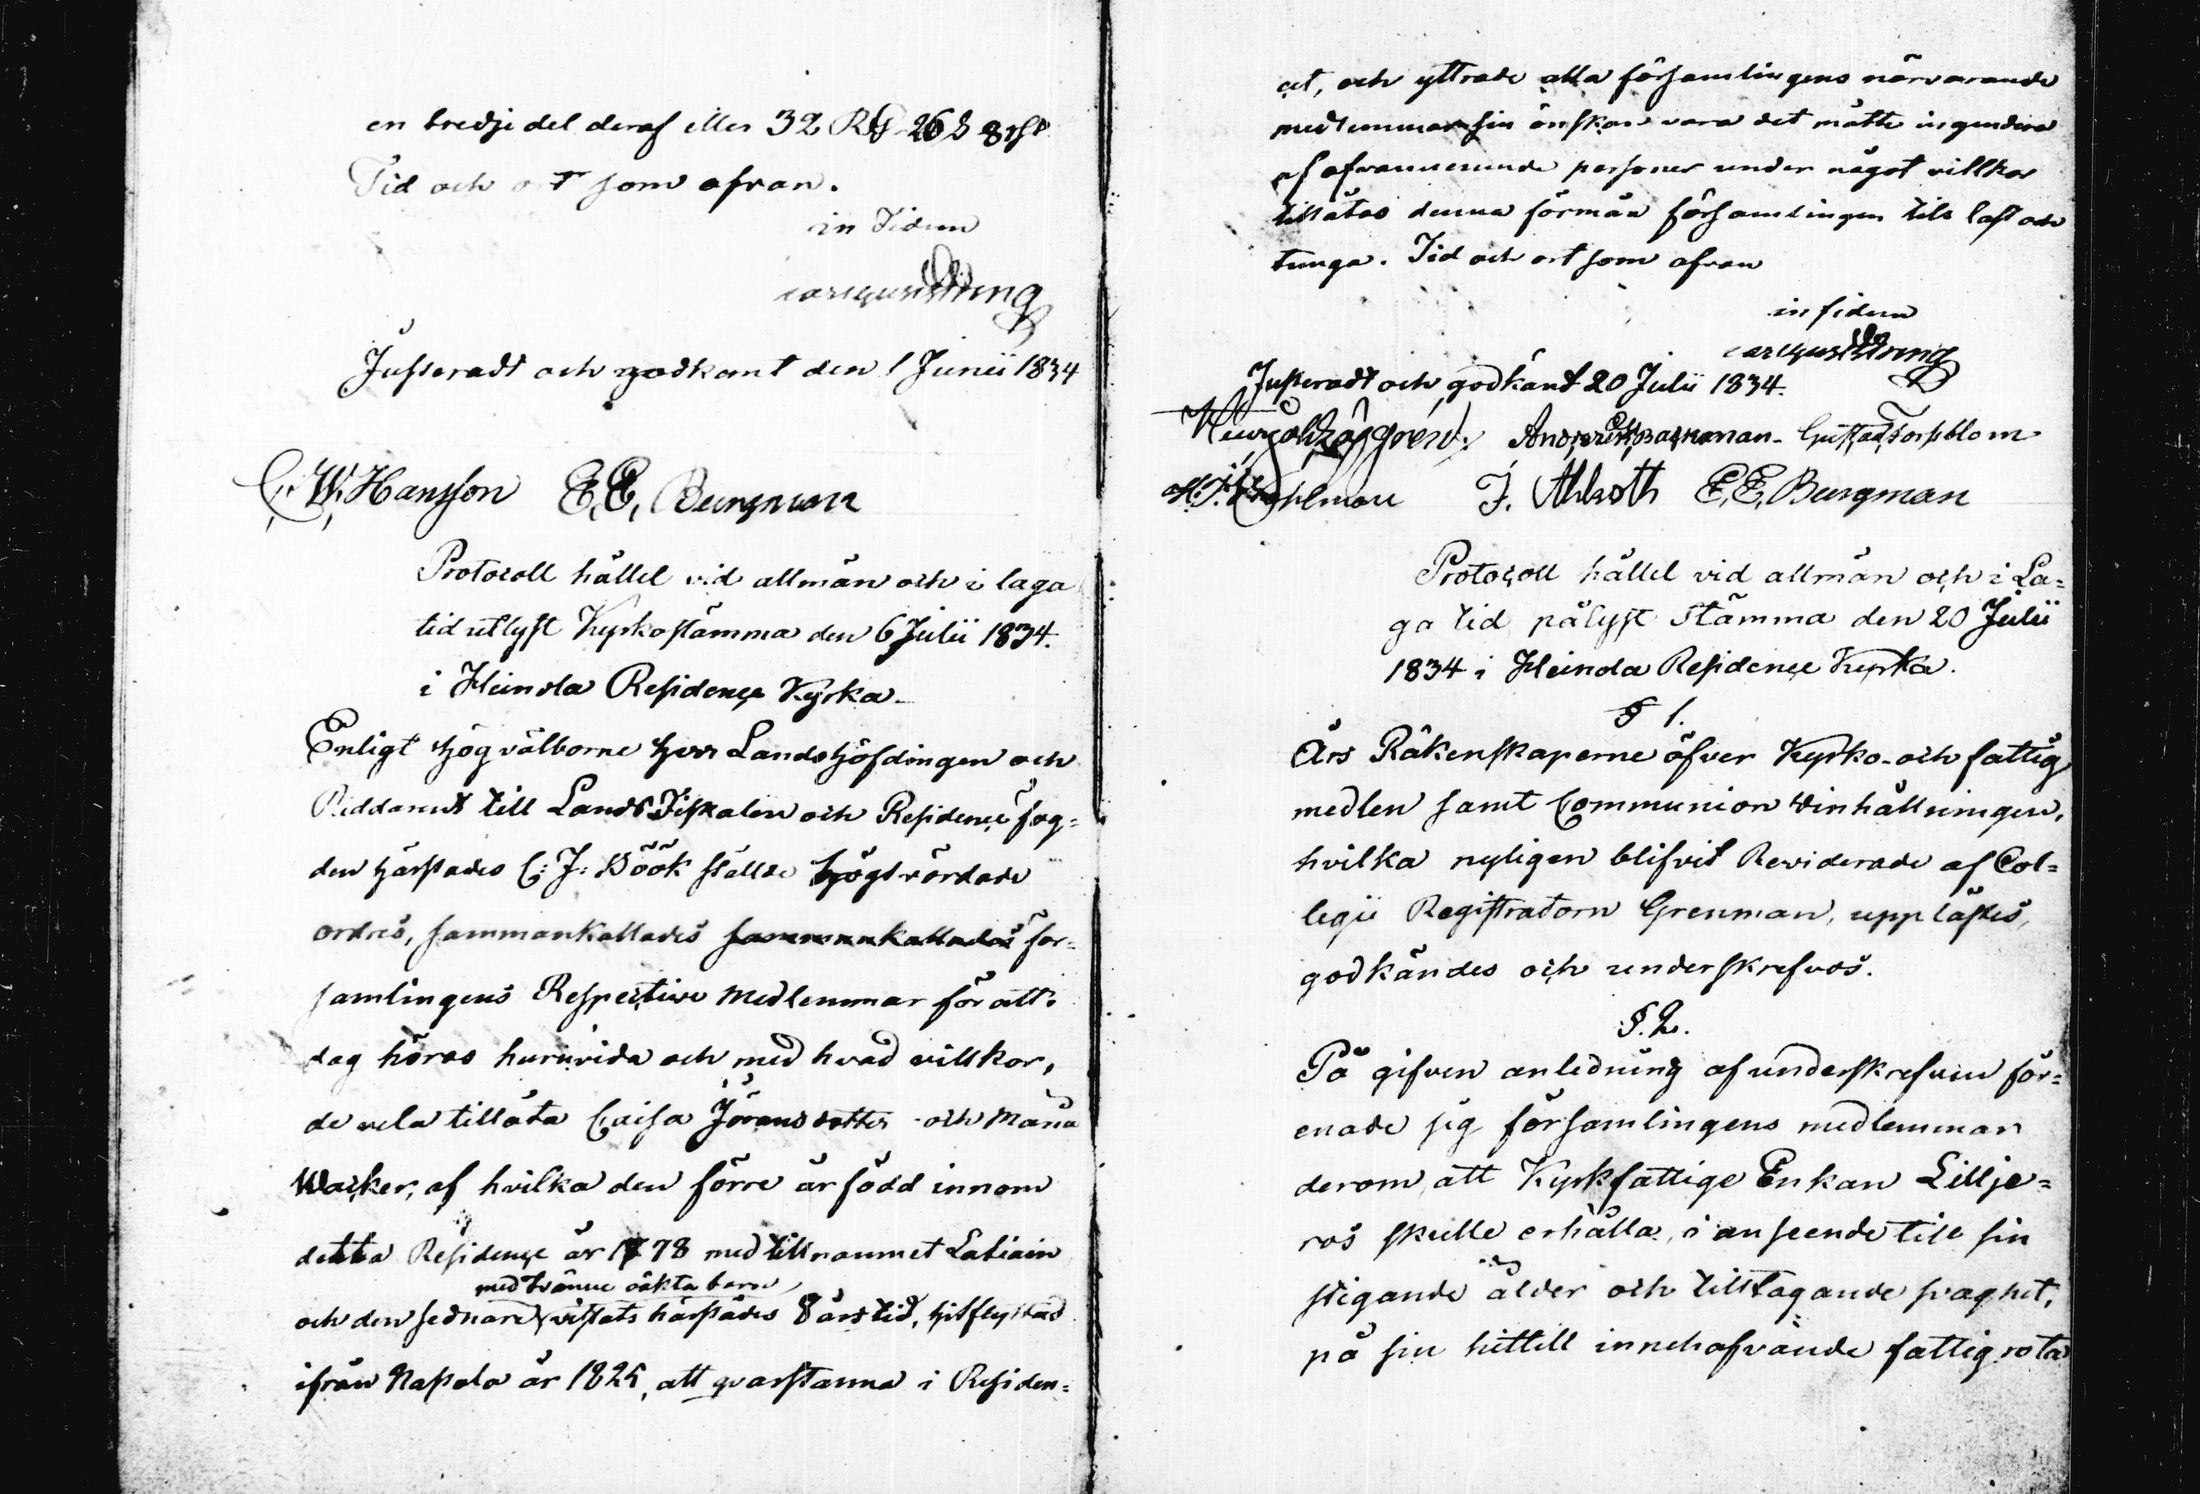 en tredje del deraf eller 32 Rd 26 s 8 rst
Tid och ort som ofvan.
in fidem
Justeradt och godkant den 1 Junii 1834
C. W. Hansson E. E. Bergman
Protocoll hållet vid allmän och i laga
tid utlyst Kyrkostämma den 6 Julii 1834.
i Heinola Residence Kyrka.
Enligt Högvälborne Herr Landshöfdingen och
Riddarens till Lands Fiskalen och Residence fog=
den härstädes C: J: Höök ställde högtvördade
ordres, sammankallades sammankallades för=
samlingens Respective Medlemmar för att i
dag höras huruvida och med hvad villkor,
de vela tillåta Caisa Jöransdotter och Maria
Wacker, af hvilka den förre är född innom
detta Residence år 1778 med tillnamnet Latiain
med tvänne oäkta barn
och den sednare vistats härstädes 8 års tid, hitflyttad
ifrån Napola år 1825, att qvarstanna i Residen=
cet, och yttrade alla församlingens närvarande
medlemmar sin önskan vara det måtte ingendera
af ofvannemnde personer under något villkor
tillåtas denna förmån församlingen till last och
tunga. Tid och ort som ofvan
in fidem
Justeradt och godkänt 20 Julii 1834.
Gustaf Forsblom
J. Ahlroth E. E. Bergman
Protocoll hållet vid allmän och i La=
ga tid pålyst Stämma den 20 Julii
1834 i Heinola Residence Kyrka.
§ 1.
Års Räkenskaperne öfver Kyrko- och fattig
medlen samt Communion Vinhållningen,
hvilka nyligen blifvit Reviderade af Col=
legii Registratorn Grenman, upplästes,
godkändes och underskrefvos.
§. 2.
På gifven anledning af underskrefven för=
enade sig församlingens medlemmar
derom att Kyrkfattige Enkan Lillje=
ros skulle erhålla, i anseende till sin
stigande ålder och tilltagande svaghet,
på sin hittill innehafvande fattig rota